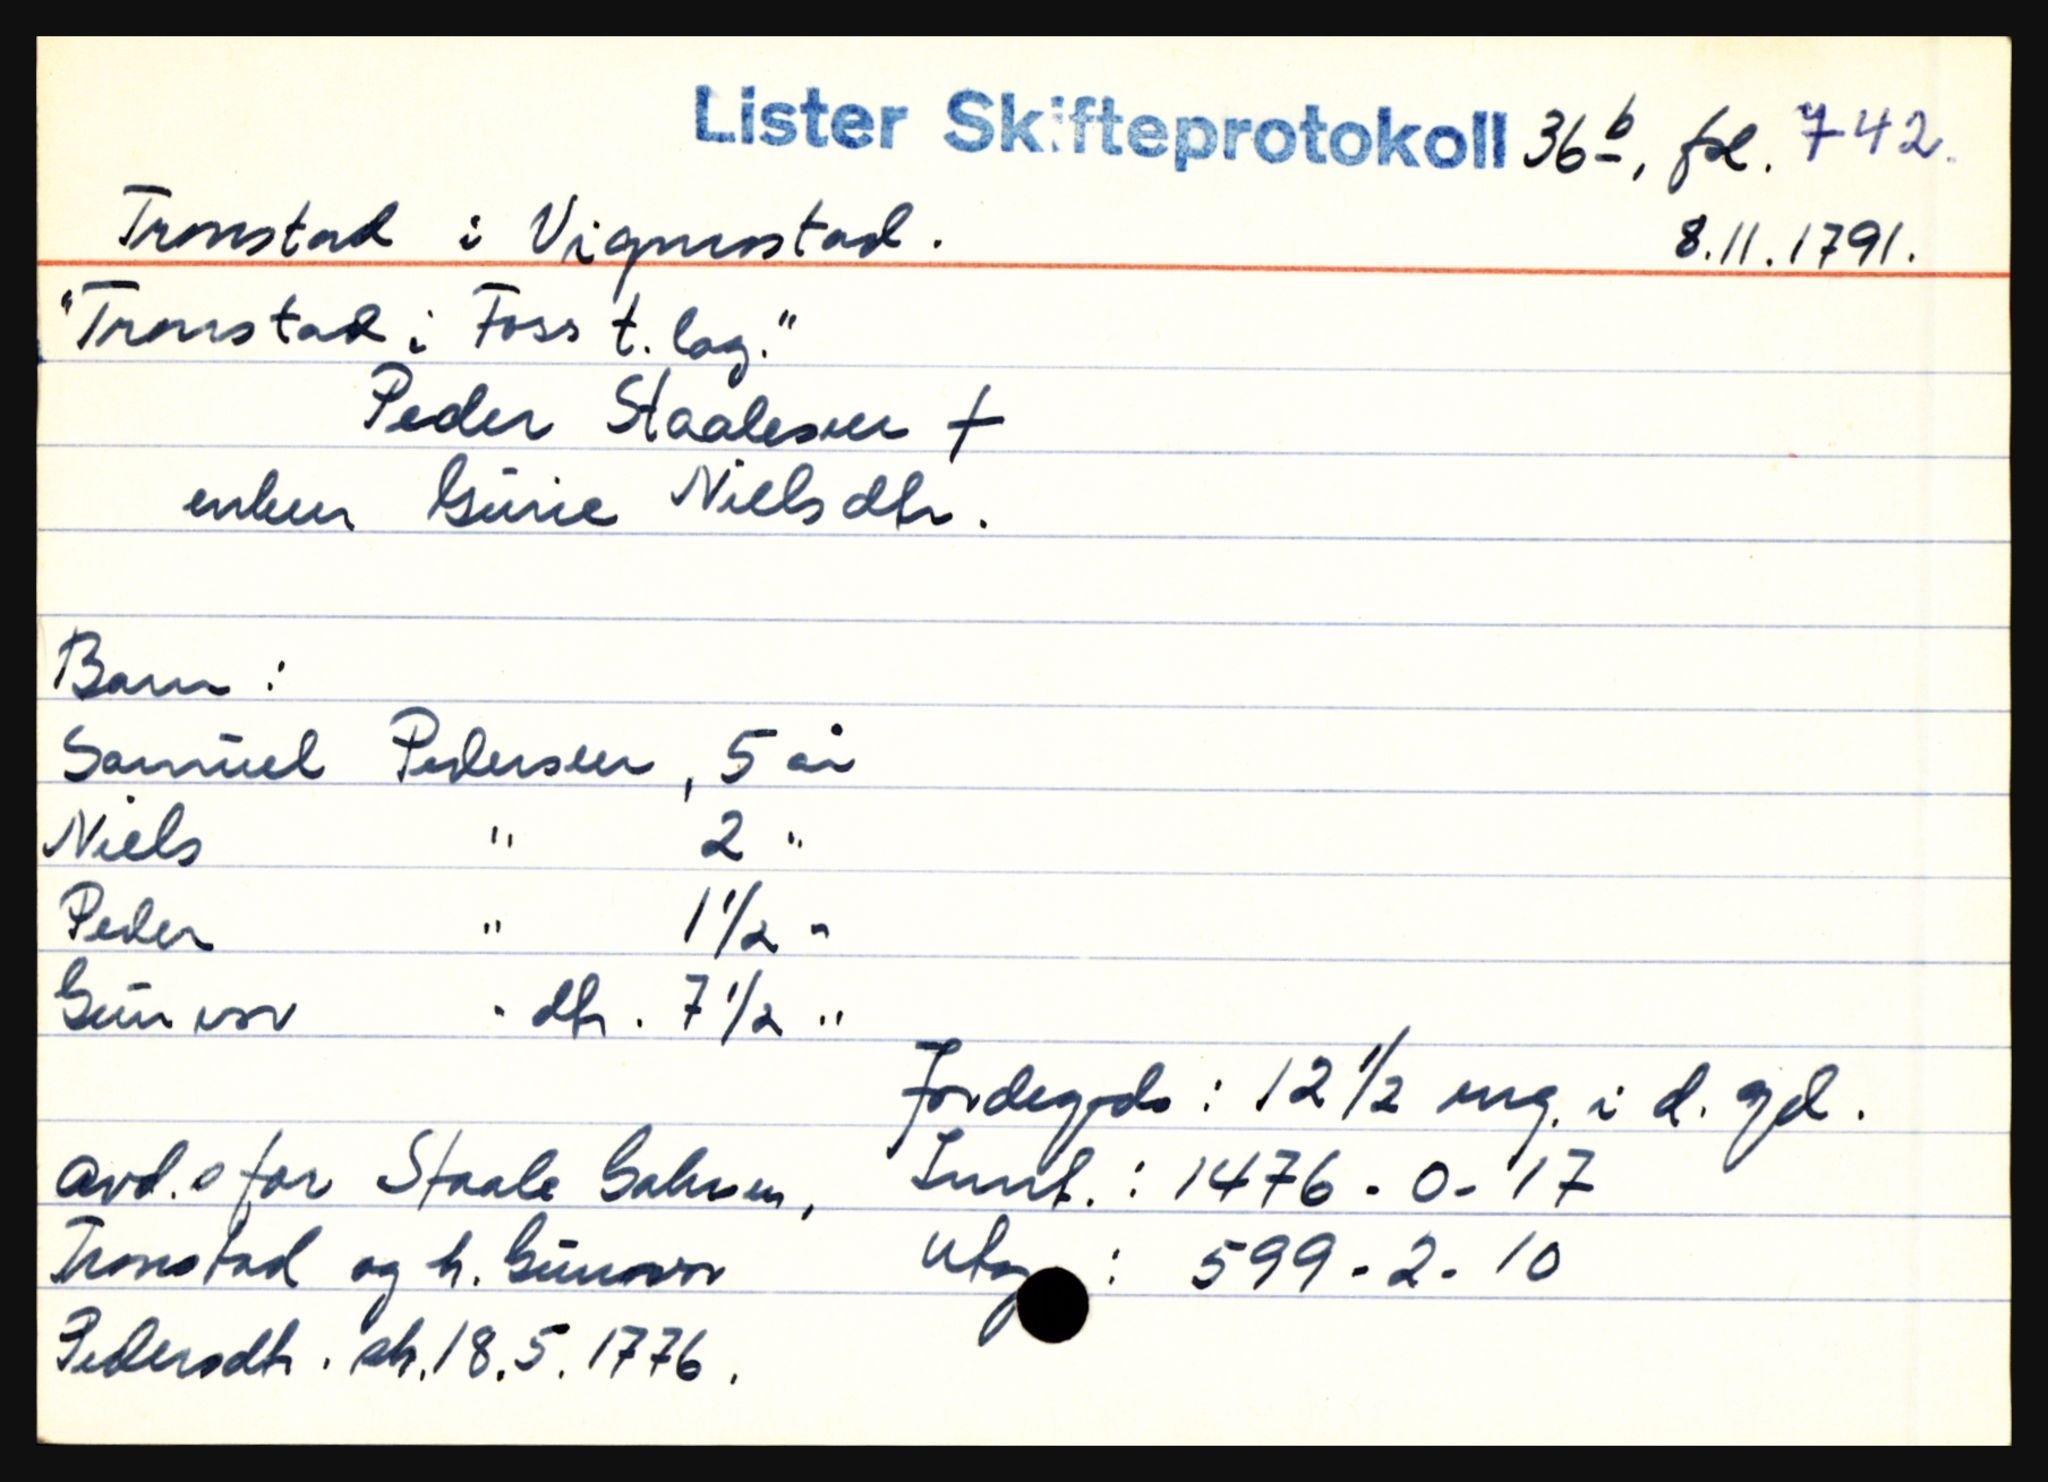 Lister Skifteprotokoll 36b, fol. 742.
Tronstad i Vigmostad. 8.11.1791.
"Tronstad i Foss t. lag."
Peder Staalesen +
enken Gūrie Nielsdtr.
Barn :
Samūel Pedersen, 5 år
Niels " 2 "
Peder " 1 1/2 "
Gūnvor " dtr. 7 1/2 "
Jordegods : 12 1/2 mg. i d. gd.
avd.s far Staale Salvesen, Innt. : 1476 - 0 - 17
Tronstad og h. Gūnvor Utg : 599 - 2 - 10
Pedersdtr. sk. 18.5.1776.